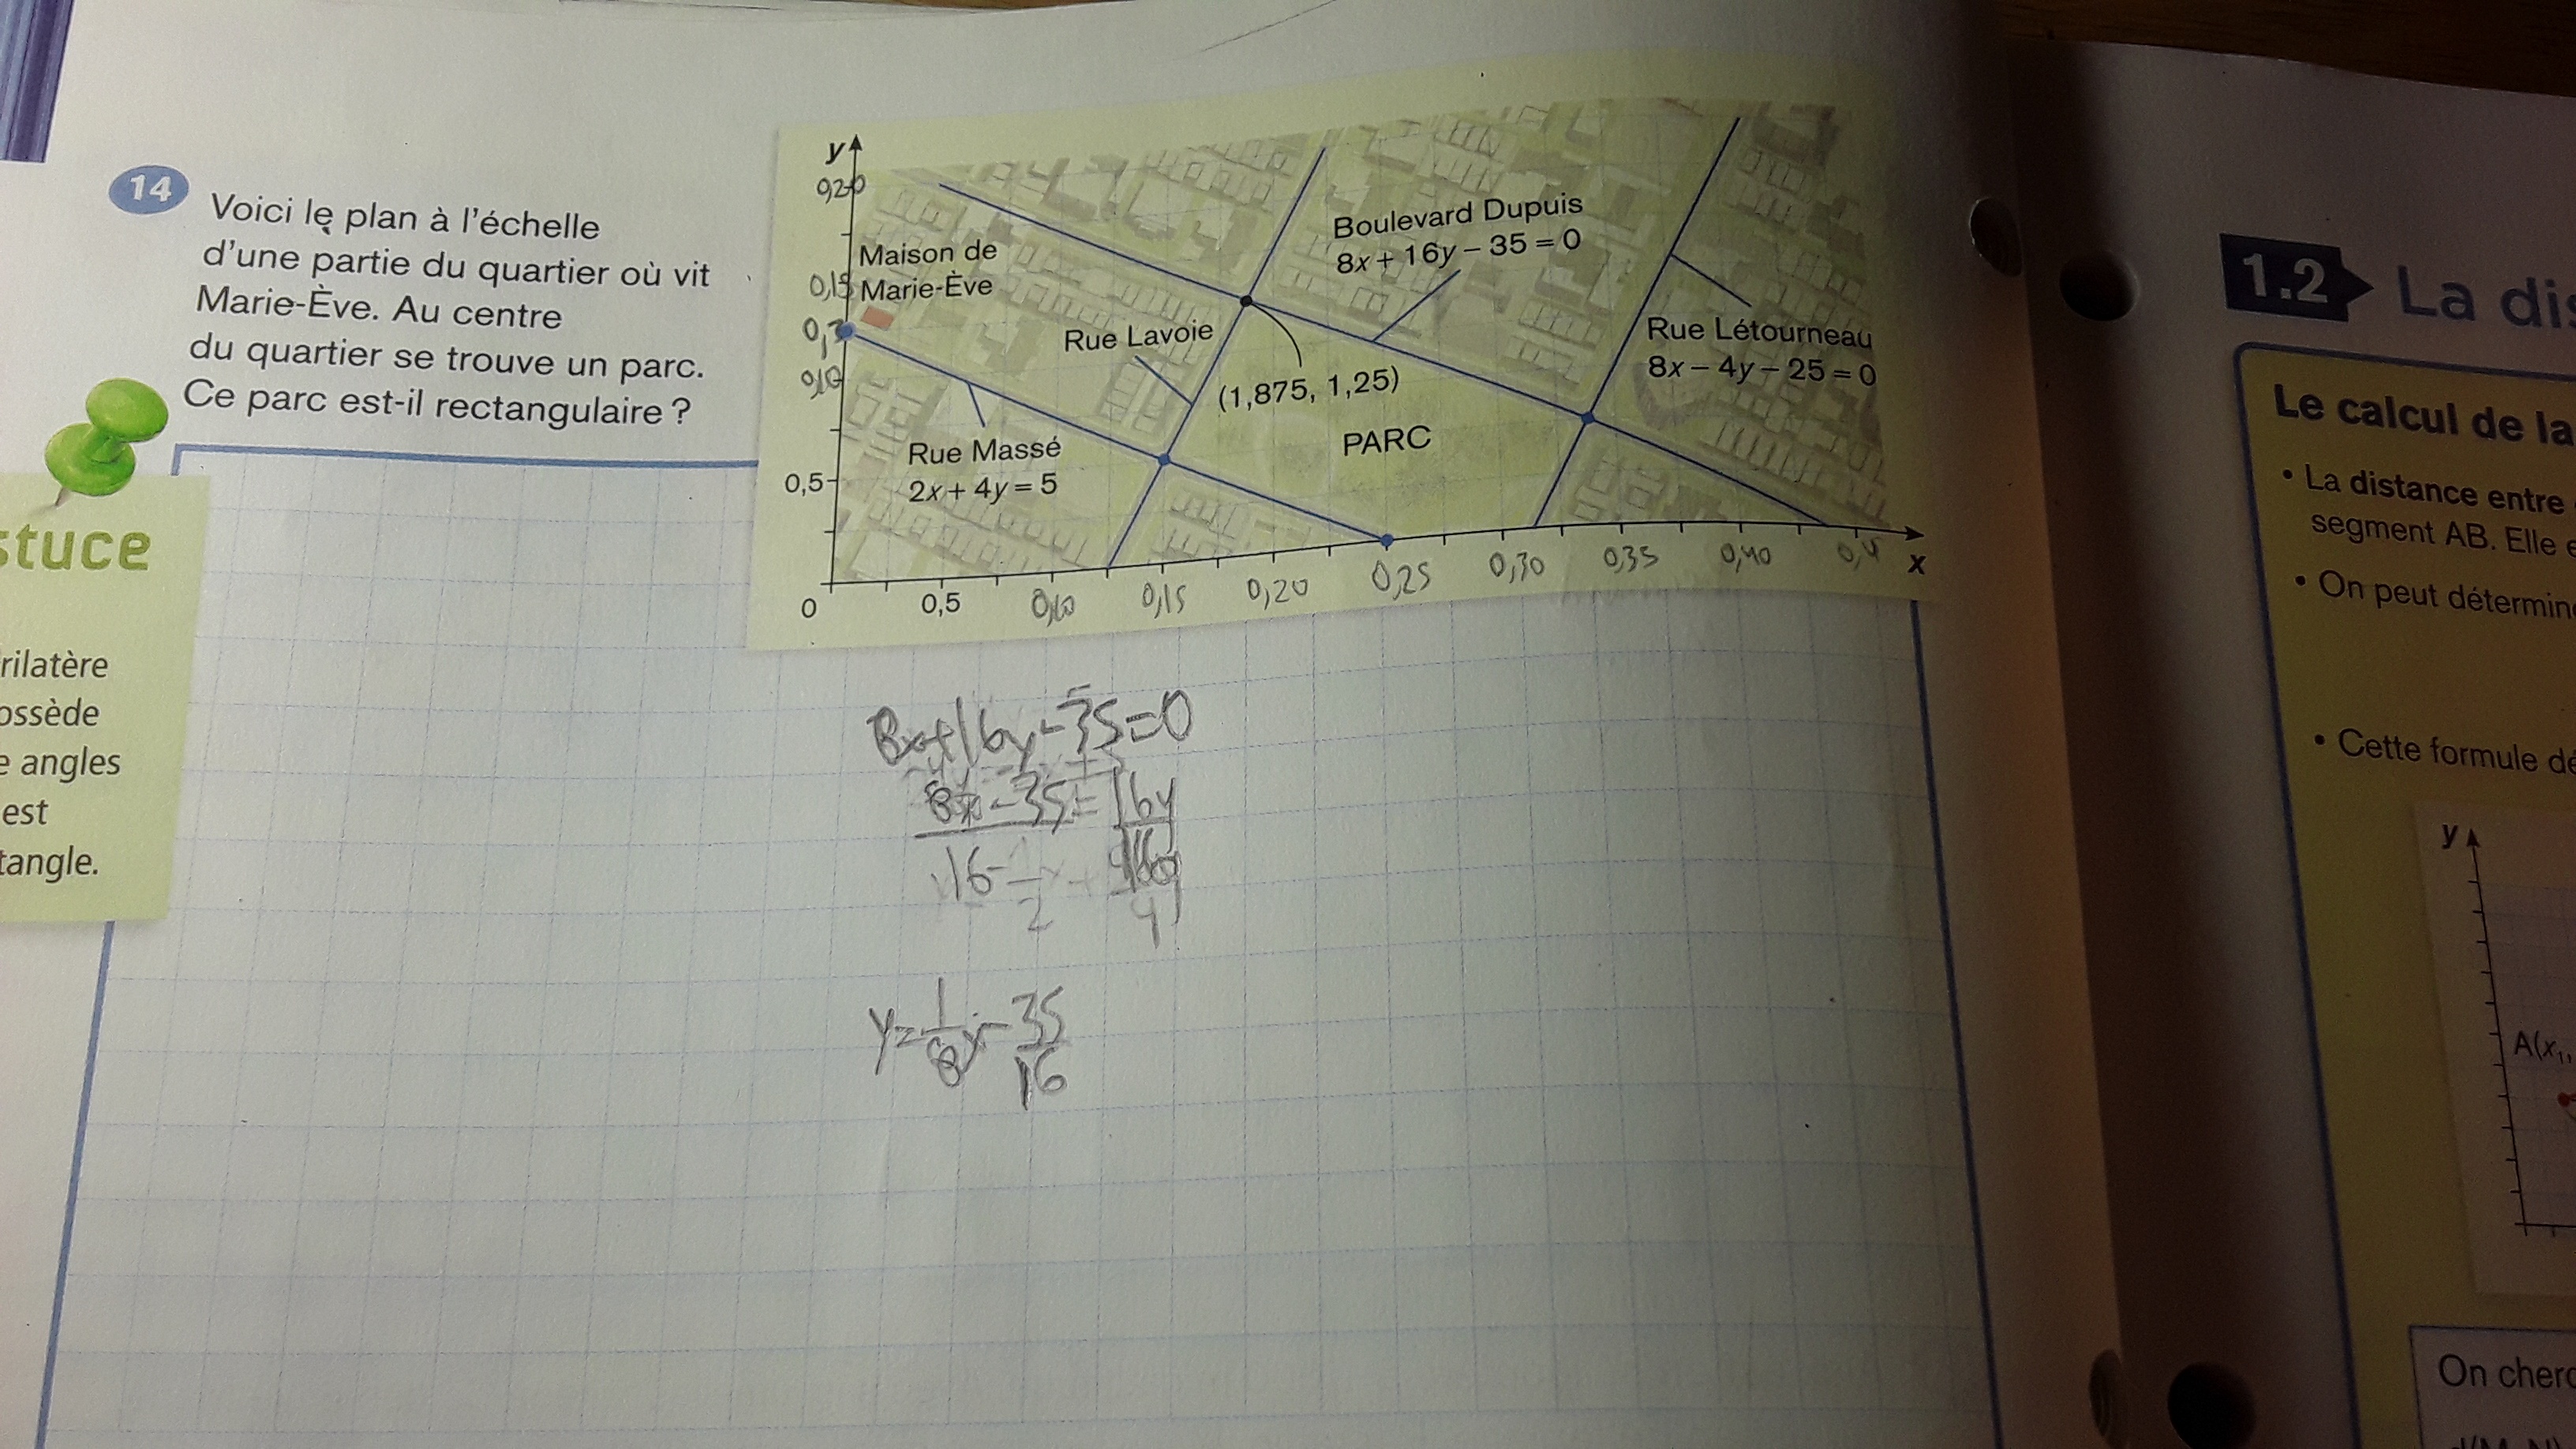 14
Voici le plan à l'échelle
d'une partie du quartier où vit
Marie-Ève. Au centre
du quartier se trouve un parc.
Ce parc est-il rectangulaire ?
stuce
rilatère
ossède
e angles
est
tangle.
y
0,20
Maison de
0,15
Marie-Ève
0,10
0,5
Rue Massé
2x + 4y = 5
Rue Lavoie
(1,875, 1,25)
Boulevard Dupuis
8x + 16y – 35 = 0
PARC
Rue Létourneau
8x – 4y – 25 = 0
0
0,5
0,10
0,15
0,20
0,25
0,30
0,35
0,40
0,4
x
8x+16y-35=0
8x-35=16y
16
y=1/8x-35/16
1.2 La dis
Le calcul de la
• La distance entre
segment AB. Elle e
• On peut détermine
• Cette formule dé
y
A(x₁,
On cherc